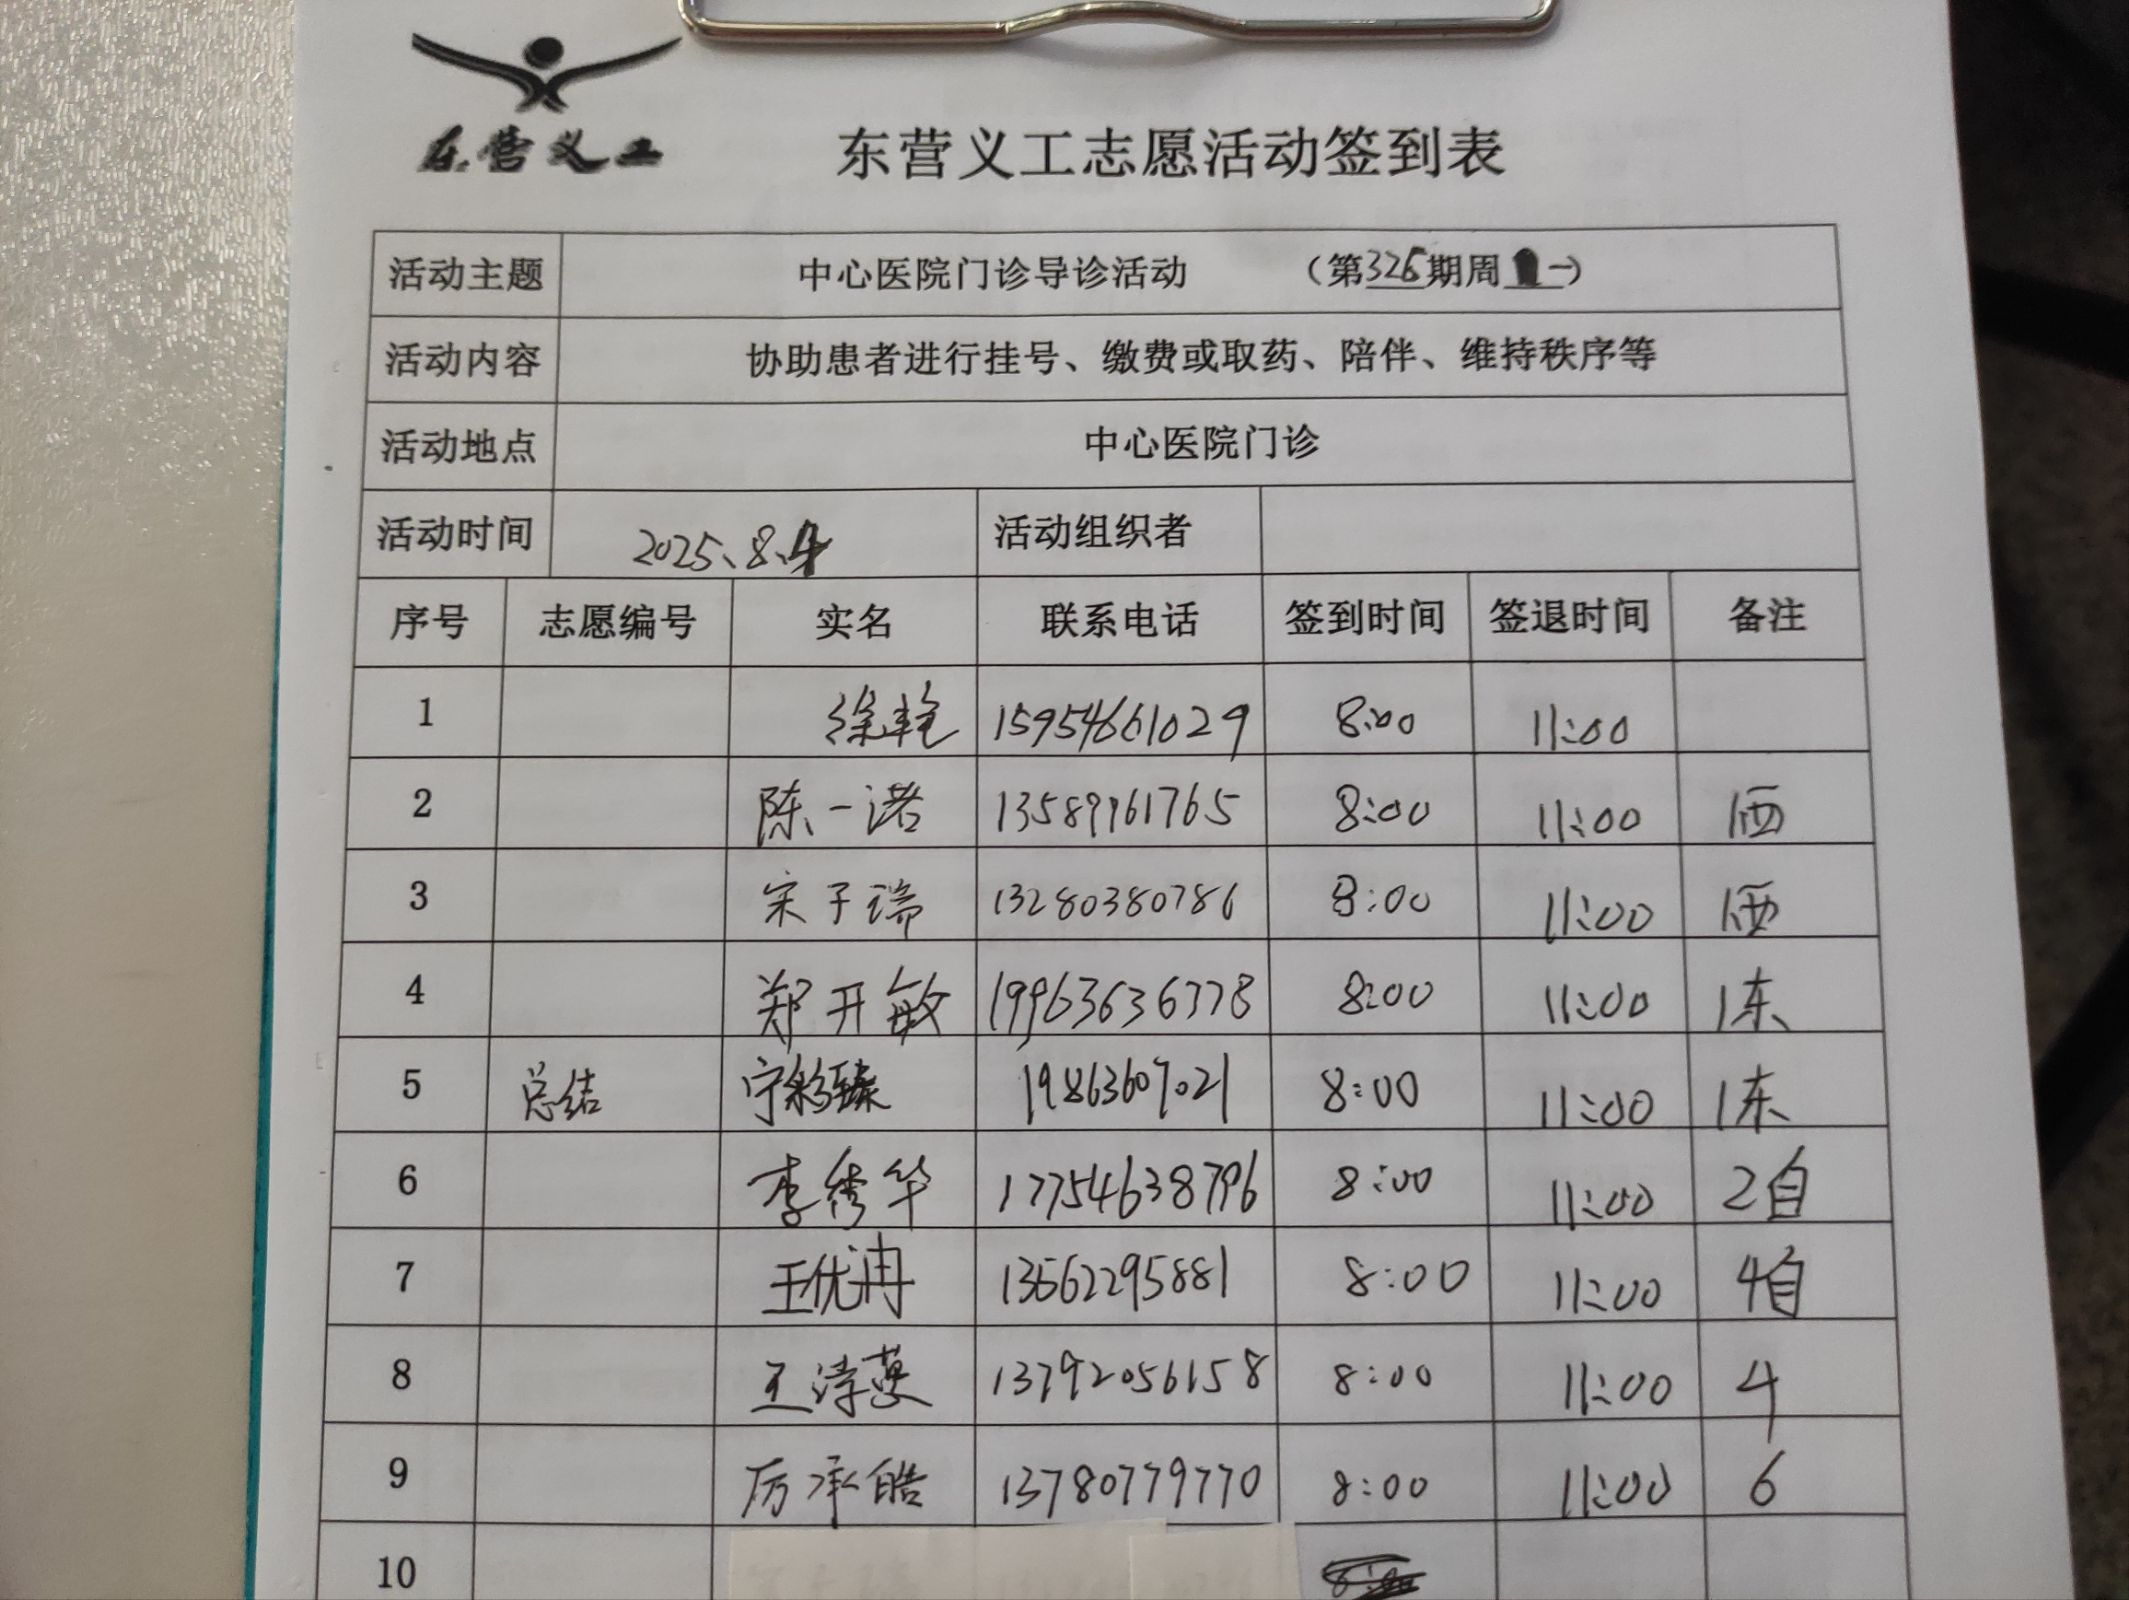 东营义工
东营义工志愿活动签到表
活动主题 中心医院门诊导诊活动 （第326期周一）
活动内容 协助患者进行挂号、缴费或取药、陪伴、维持秩序等
活动地点 中心医院门诊
活动时间 2025.8.4 活动组织者
序号 志愿编号 实名 联系电话 签到时间 签退时间 备注
1 徐艳 15954661029 8:00 11:00
2 陈一诺 13589961765 8:00 11:00 1西
3 宋子瑞 13280380786 8:00 11:00 1西
4 郑开敏 19963636778 8:00 11:00 1东
5 总结 宁彩臻 19863607021 8:00 11:00 1东
6 李秀华 17754638796 8:00 11:00 2自
7 王优冉 13562295881 8:00 11:00 4自
8 王涛英 13792056158 8:00 11:00 4
9 厉承皓 13780779770 8:00 11:00 6
10